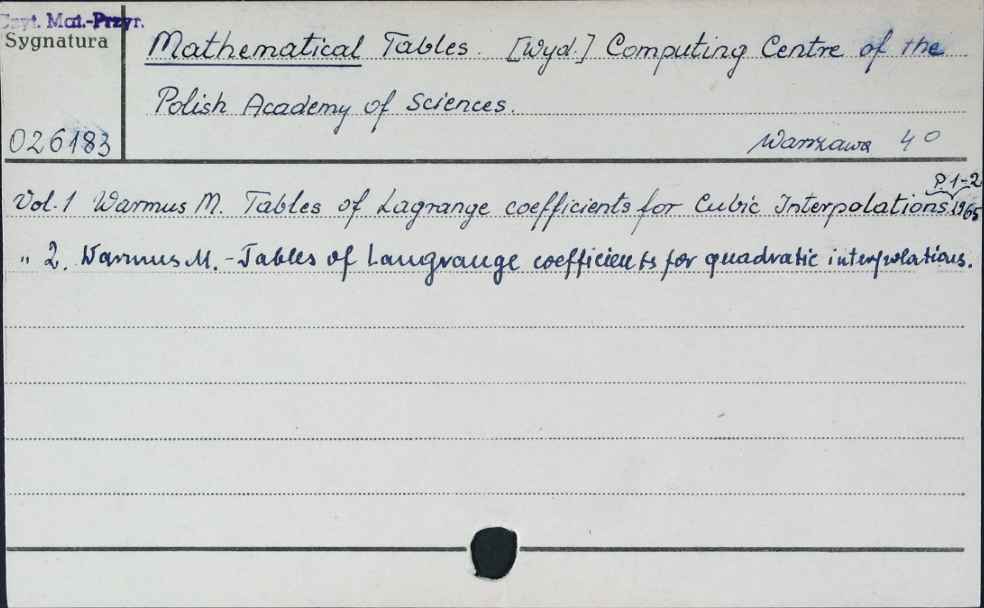 Czyt. Mat.-Przyr.
Sygnatura
Mathematical Tables. [Wyd.] Computing Centre of the
Polish Academy of Sciences.
026183
Warszawa 4°
P. 1-2
Vol. 1 Warmus M. Tables of Lagrange coefficients for Cubic Interpolations. 1965
" 2. Warmus M. - Tables of Laugrauge coefficients for quadratic interpolations.